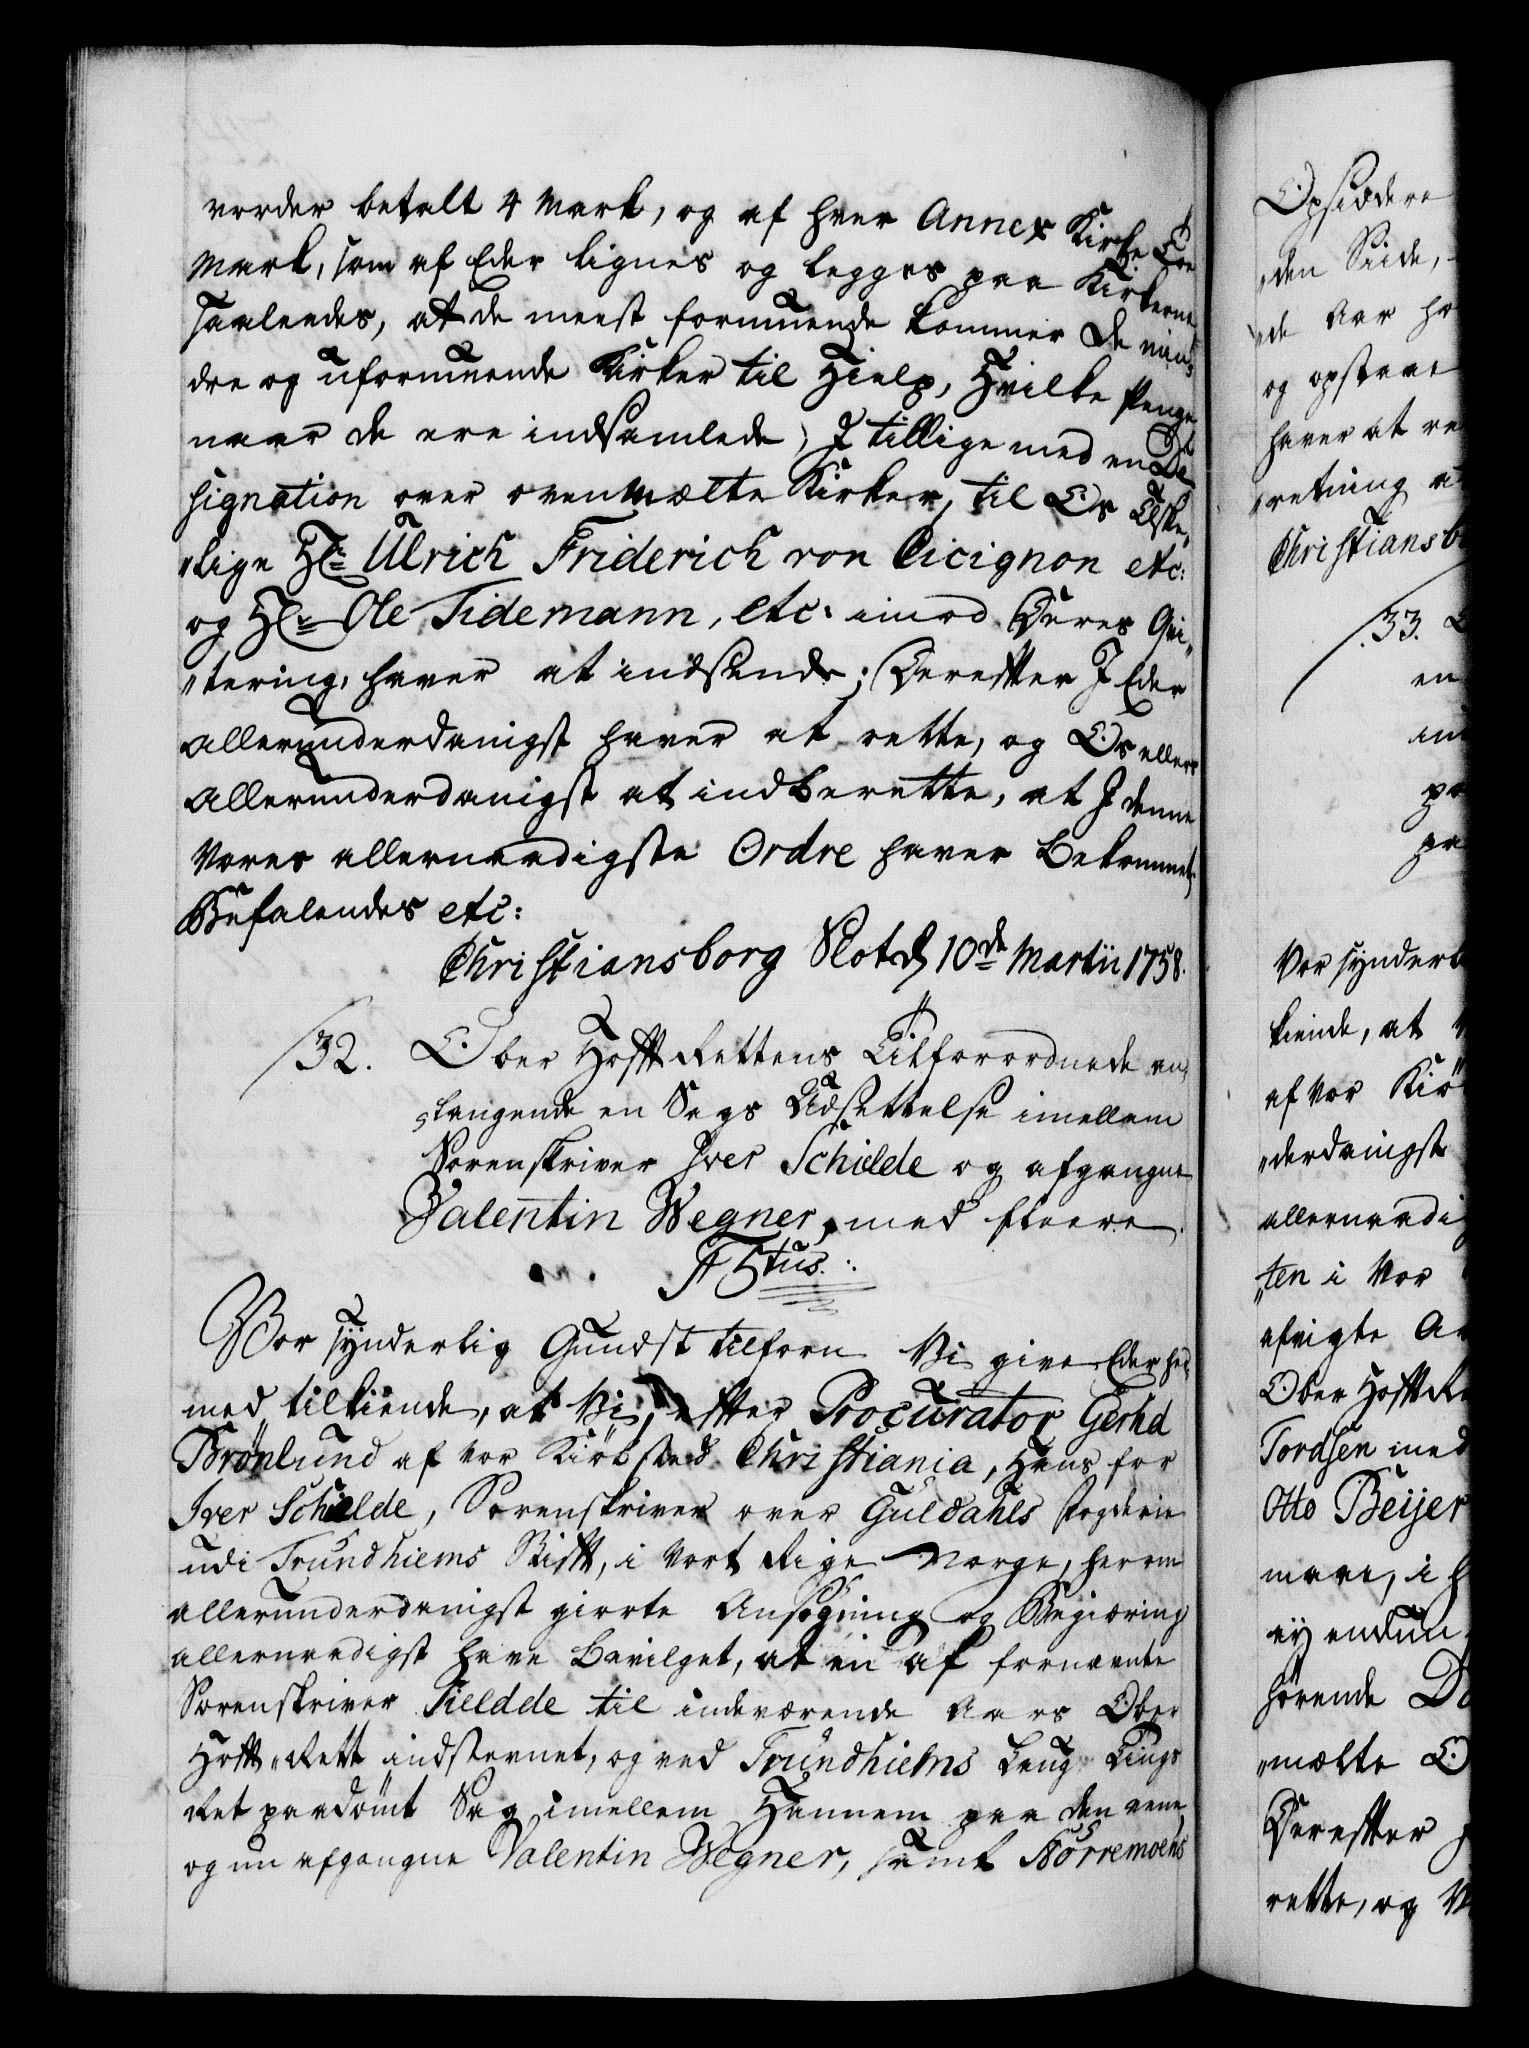 vorder betalt 4 Mark, og af hver Annex Kirke Toe
Mark, som af Eder lignes og legges paa Kirkerne
saaledes, at de meest formuende kommer de min,
dre og uformuende Kirker til Hielp, Hvilke Penge
naar de ere indsamlede, I tillige med en De
signation over ovenmælte Kirker, til Os Elske,
"lige Hr. Ulrich Friderich von Cicignon etc:
og Hr. Ole Tidemann, etc: imod Deres Qvi"
"tering, haver at indsende; Derefter I Eder
allerunderdanigst haver at rette, og Os ellers
allerunderdanigst at indberette, at I denne
Vores allernaadigste Ordre haver bekommet,
Befalendes etc:
Christiansborg Slot d. 10de Martii 1758.
32. Ober Hoff Rettens Tilforordnede an,
"langende en Sags Udsettelse imellem
Sorenskriver Iver Schielde og afgangne
Valentin Wegner, med fleere.
F 5tus.
Vor synderlig Gunst tilforn Vi give Eder her,
med tilkiende, at Vi, efter Procurator Gerhd
Brönlund af vor Kiöbsted Christiania, Hans for
Iver Schielde, Sorenskriver over Guldahls Fogderie
udi Trundhiems Stift, i Vort Rige Norge, herom
allerunderdanigst giorte Ansøgning og Begiæring
allernaadigst have bevilget, at en af fornævnte
Sorenskriver Sieldde til indeværende Aars Ober
Hoff-Rett indstevnet, og ved Trundhiems Laug-Tings
Ret paadömt Sag imellem Hannem paa den eene
og nu afgangne Valentin Wegner, samt Störremoens
Opsiddere
"den Siide,
"de Aar
og opstaae
haver at
"retning
Christiansb
33.
en
ind
Vor synderl
kiende, at
af vor Kiö
"derdanigst
allernaadig
"ten i Vor
afvigte
Ober Hoff Re
Tordsen med
Otto Beijer
maae, i
ey endnu
hörende
"mælte
Derefter
rette, og